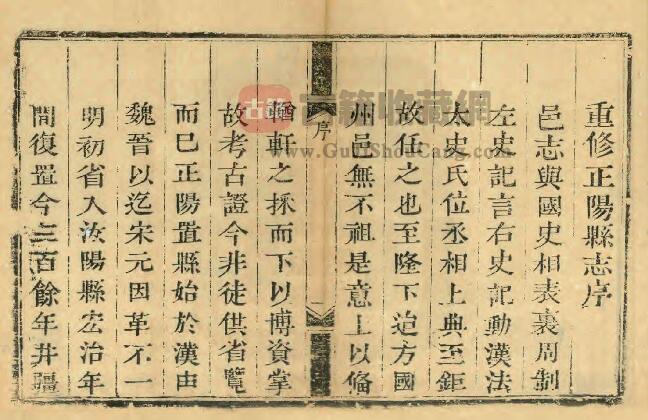 重修正陽縣志序
邑志與國史相表裏周制
左史記言右史記動漢法
太史氏位丞相上典至鉅
故任之也至隆下迨方國
州邑無不祖是意上以偹
序
一
輶軒之採而下以博資掌
故考古證今非徒供省覽
而已正陽置縣始於漢由
魏晉以迄宋元因革不一
明初省入汝陽縣宏治年
間復置今三百餘年井疆
古籍收藏網
www.GujiShouCang.com